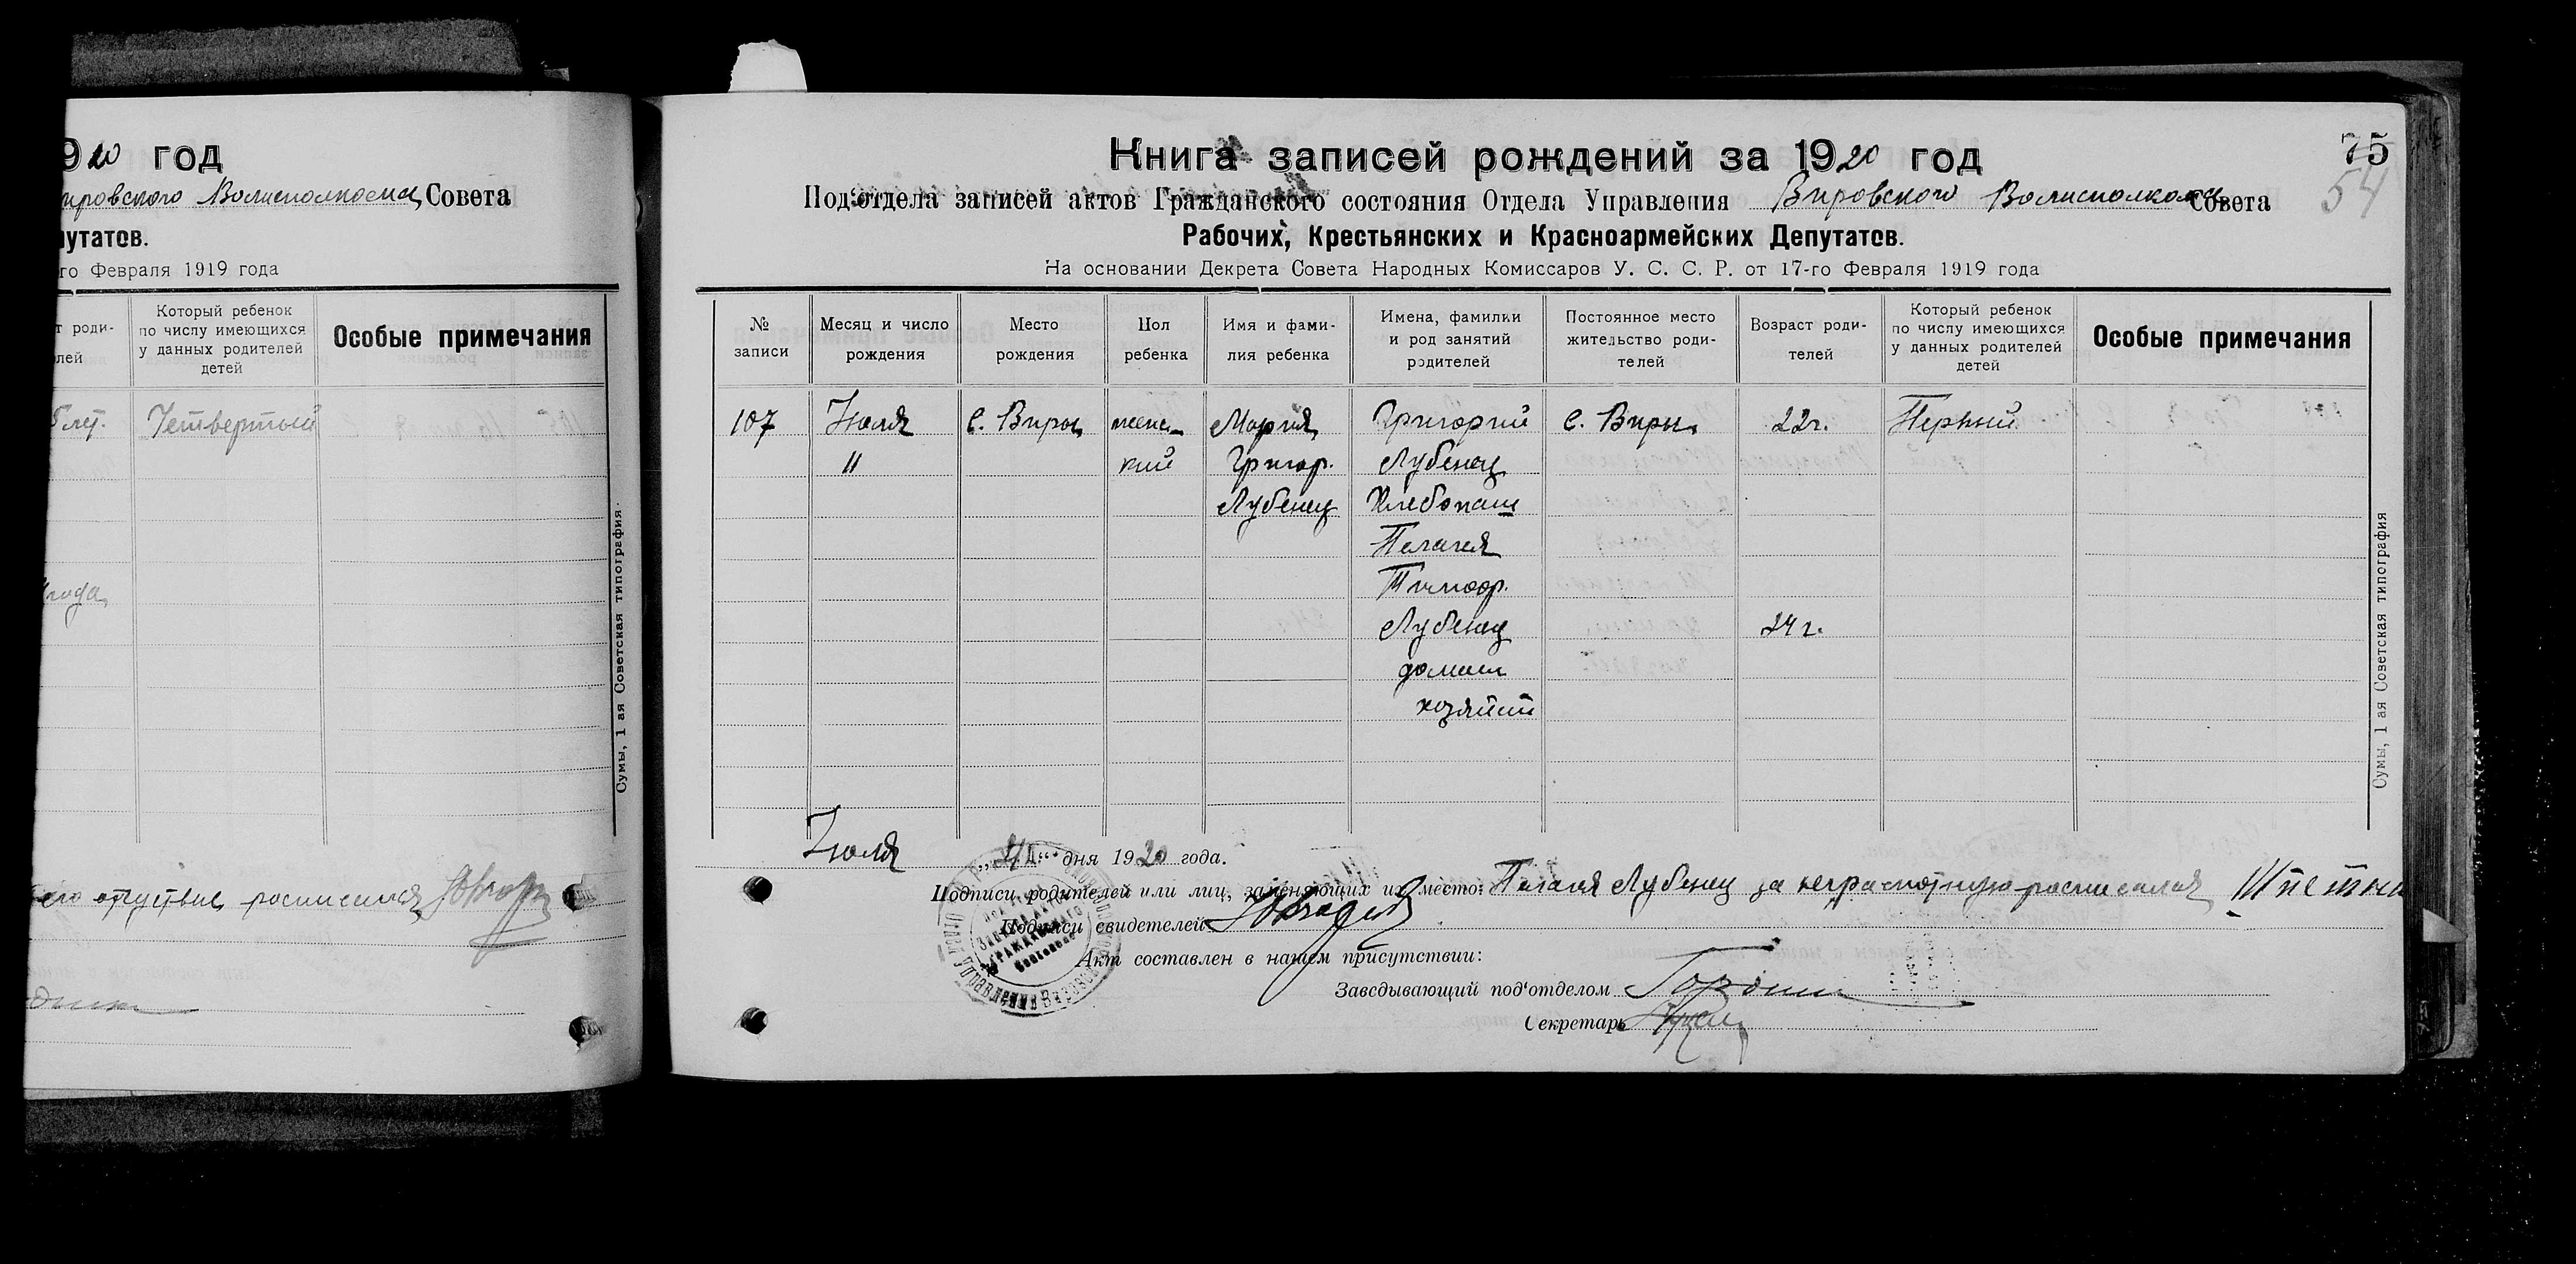 20 год
ировского Волисполкома Совета
путатов.
го Февраля 1919 года
т роди-
лей
Который ребенок
по числу имеющихся
у данных родителей
детей
Особые примечания
лет. Четвертый
года
Сумы, 1 ая Советская типография.
его отсуствие росписался
75
54
Книга записей рождений за 1920 год
Под'отдела записей актов Гражданского состояния Отдела Управления Вировского Волисполкома Совета
Рабочих, Крестьянских и Красноармейских Депутатов.
На основании Декрета Совета Народных Комиссаров У. С. С. Р. от 17-го Февраля 1919 года
№
записи
Месяц и число
рождения
Место
рождения
Пол
ребенка
Имя и фами-
лия ребенка
Имена, фамилии
и род занятий
родителей
Постоянное место
жительство роди-
телей
Возраст роди-
телей
Который ребенок
по числу имеющихся
у данных родителей
детей
Особые примечания
107 Июля с. Виры женс- Мария Григорий с. Виры 22 г. Первый
11 кий Григор. Лубенец
Лубенец Хлебопаш
Пелагея
Тимоф.
Лубенец 24 г.
домаш
хозяйст
Сумы, 1 ая Советская типография
Июля дня 1920 года.
Подписи родителей или лиц, заменяющих их место: Пелагея Лубенец за неграмотную росписался
Подписи свидетелей
Акт составлен в нашем присутствии:
Заведывающий под'отделом
Секретарь